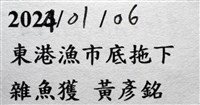 2023/01/06
東港漁市底拖下
雜魚獲 黃彥銘